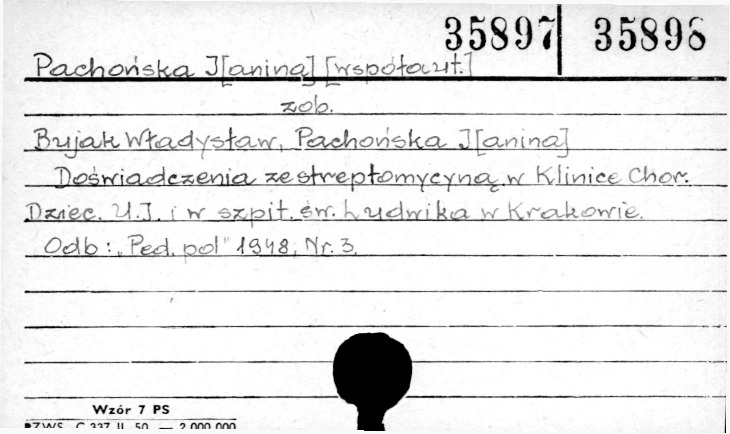 35897 35898
Pachońska J[anina] [współaut.]
zob.
Bujak Władysław, Pachońska J[anina]
Doświadczenia ze streptomycyną w Klinice Chor.
Dziec. U.J. i w szpit. św. Ludwika w Krakowie.
Odb: „Ped. pol" 1948, Nr. 3.
Wzór 7 PS
PZWS. C 337 II. 50. — 2 000 000